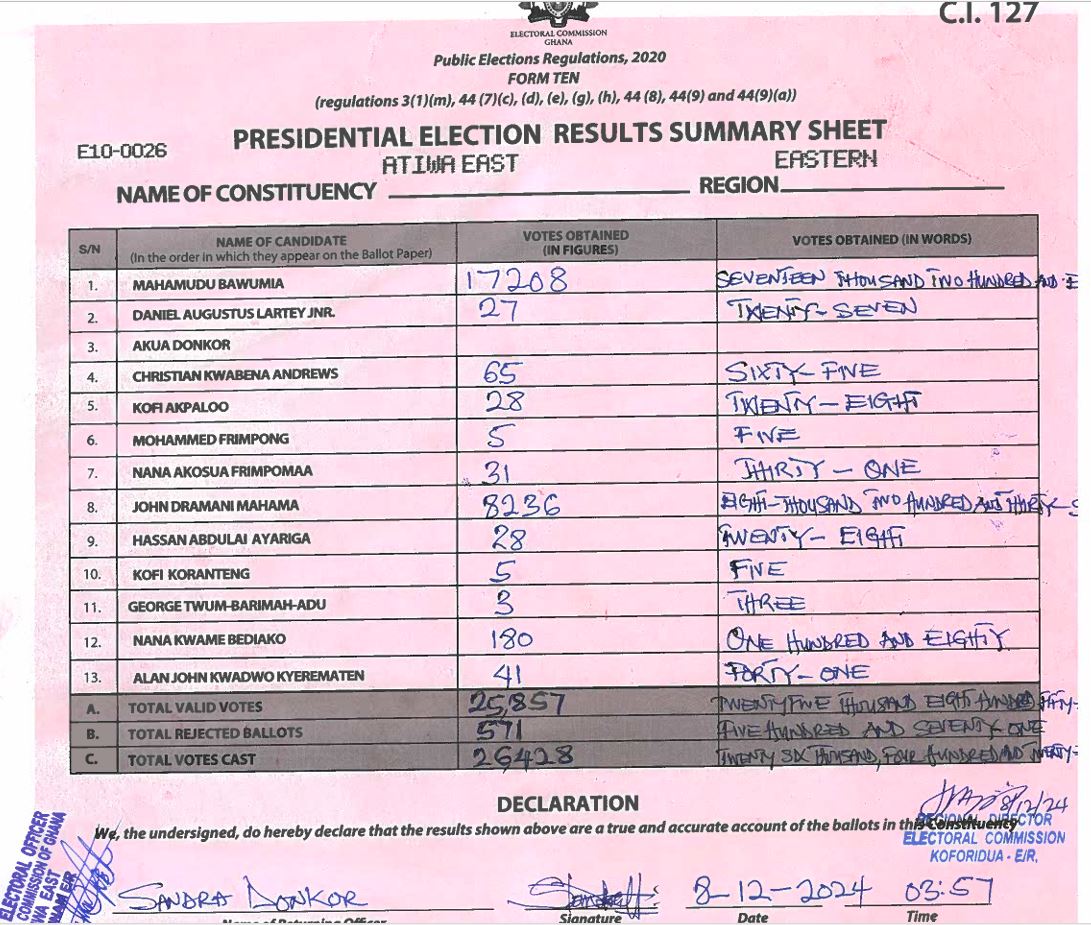 C.I. 127
ELECTORAL COMMISSION
GHANA
Public Elections Regulations, 2020
FORM TEN
(regulations 3(1)(m), 44 (7)(c), (d), (e), (g), (h), 44 (8), 44(9) and 44(9)(a))
E10-0026
PRESIDENTIAL ELECTION RESULTS SUMMARY SHEET
NAME OF CONSTITUENCY ATIWA EAST REGION EASTERN
S/N NAME OF CANDIDATE (In the order in which they appear on the Ballot Paper) VOTES OBTAINED (IN FIGURES) VOTES OBTAINED (IN WORDS)
1. MAHAMUDU BAWUMIA 17208 SEVENTEEN THOUSAND TWO HUNDRED AND E
2. DANIEL AUGUSTUS LARTEY JNR. 27 TWENTY-SEVEN
3. AKUA DONKOR
4. CHRISTIAN KWABENA ANDREWS 65 SIXTY-FIVE
5. KOFI AKPALOO 28 TWENTY-EIGHT
6. MOHAMMED FRIMPONG 5 FIVE
7. NANA AKOSUA FRIMPOMAA 31 THIRTY-ONE
8. JOHN DRAMANI MAHAMA 8236 EIGHT-THOUSAND TWO HUNDRED AND THIRTY-S
9. HASSAN ABDULAI AYARIGA 28 TWENTY-EIGHT
10. KOFI KORANTENG 5 FIVE
11. GEORGE TWUM-BARIMAH-ADU 3 THREE
12. NANA KWAME BEDIAKO 180 ONE HUNDRED AND EIGHTY
13. ALAN JOHN KWADWO KYEREMATEN 41 FORTY-ONE
A. TOTAL VALID VOTES 25,857 TWENTY FIVE THOUSAND EIGHT HUNDRED FIFTY-
B. TOTAL REJECTED BALLOTS 571 FIVE HUNDRED AND SEVENTY ONE
C. TOTAL VOTES CAST 26428 TWENTY SIX THOUSAND, FOUR HUNDRED AND TWENTY-
DECLARATION
8/12/24
We, the undersigned, do hereby declare that the results shown above are a true and accurate account of the ballots in this Constituency
REGIONAL DIRECTOR
ELECTORAL COMMISSION
KOFORIDUA - E/R,
ELECTORAL OFFICER
COMMISSION OF GHANA
WA EAST
E/R
SANDRA DONKOR 8-12-2024 03:57
Name of Returning Officer Signature Date Time